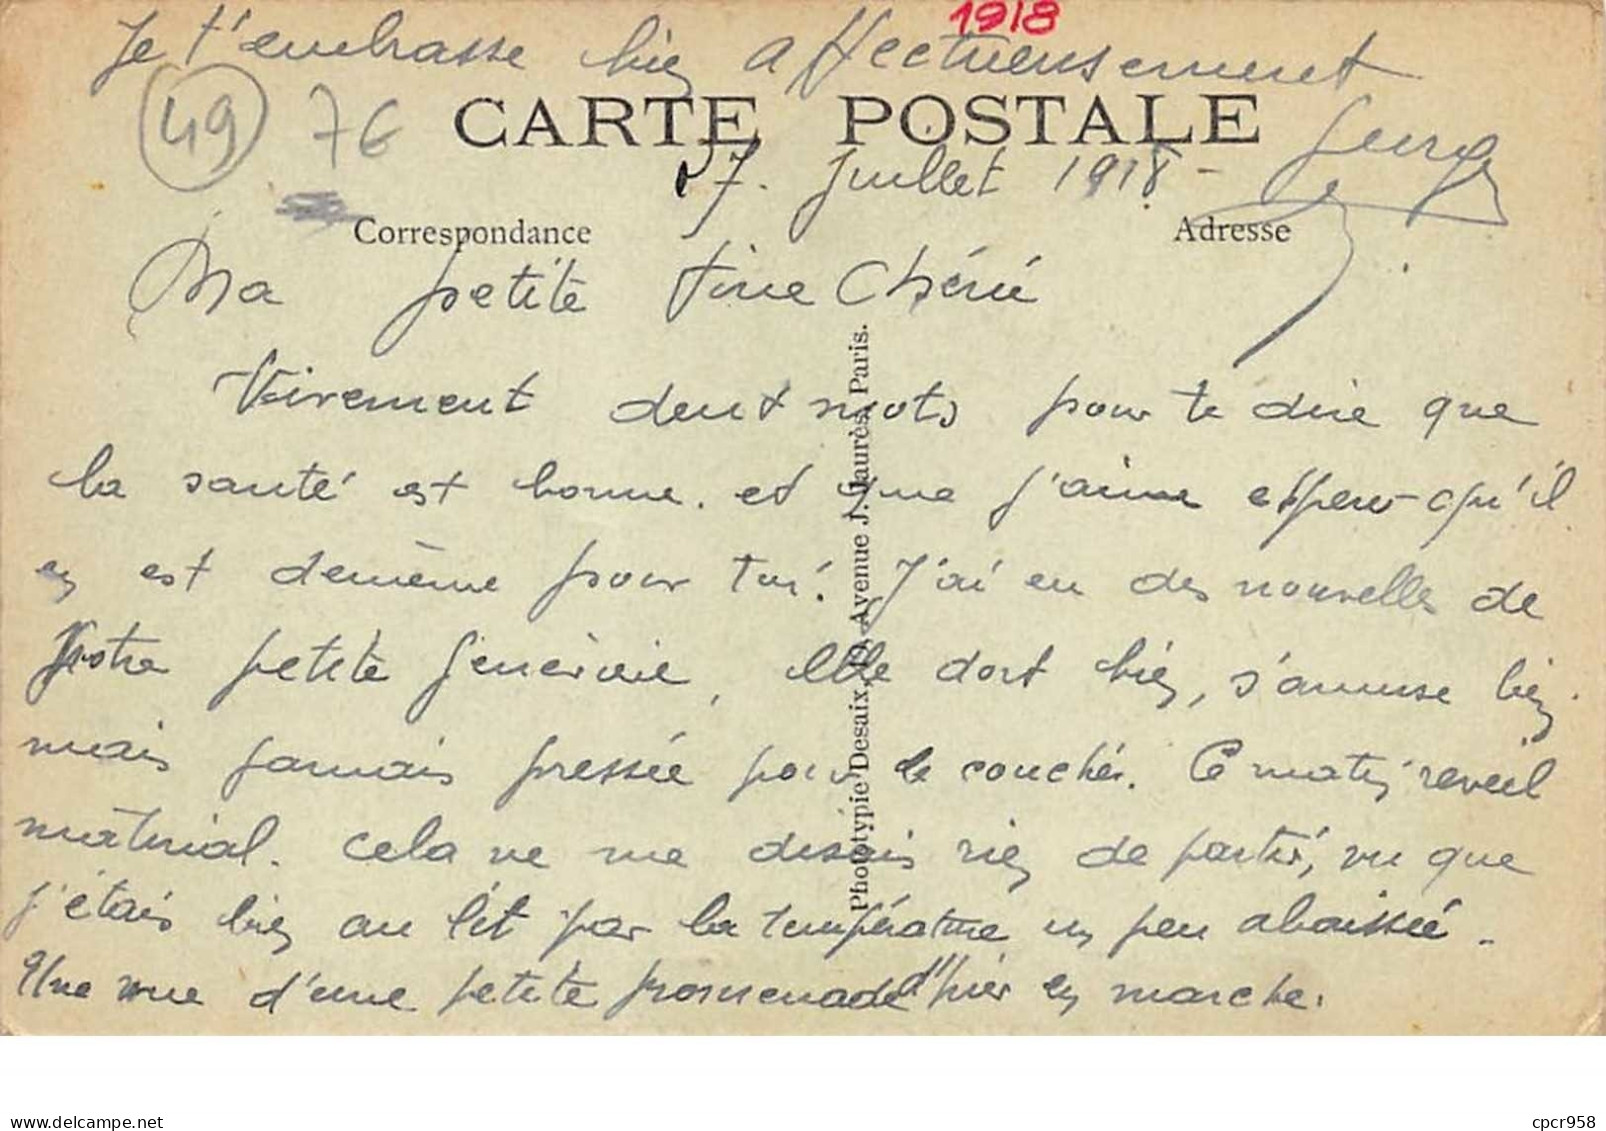 1918
Je t'embrasse bien affectueusement
49 76
CARTE POSTALE
Georges
17. Juillet 1918 -
Correspondance
Adresse
Ma petite Tine Chérie
Vivement deux mots pour te dire que
la santé est bonne. et que j'aime espérer qu'il
en est de même pour toi. J'ai eu des nouvelles de
Notre petite Geneviève, elle dort bien, s'amuse bien
mais jamais pressée pour se coucher. Ce matin reveil
matinial. cela ne me disais rien de partir, vu que
j'étais bien au lit par la température un peu abaissée.
Une vue d'une petite promenade d'hier en marche.
Phototypie Desaix, Avenue J. Jaurès, Paris.
www.delcampe.net
cpcr958